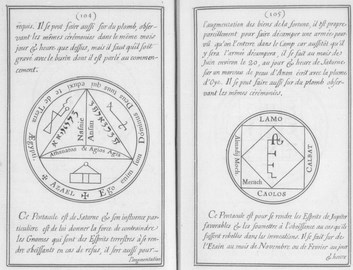 (102)
requis. Il se peut faire aussi sur du plomb, obser-
vant les mêmes cérémonies dans le même mois
jour & heure que dessus, mais il faut qu'il soit
gravé avec le burin dont il est parlé au commen-
cement.
Ægypti
Nalich
Aullan
& Agios Agia
AZAEL
Ego
Ce Pentacule est de Saturne & son influence par-
ticuliere est de lui donner la force de contraindre
les Gnomes qui sont des Esprits terrestres à se ren-
dre obéissants en cas de refus, il sert aussi pour
l'augmentation
(103)
l'augmentation des biens de la fortune, il est propre
pareillement pour faire décamper une armée pour-
vû qu'on l'enterre dans le Camp car aussitôt qu'il
y sera l'armée décampera, il se fait au mois de
Juin environ le 20. au jour & heure de Saturne
sur un morceau de peau d'Anon écrit avec la plume
d'Oye. Il se peut faire aussi sur du plomb obser-
vant les mêmes cérémonies.
LAMO
CALBAT
Monach
CAOLOS
Ce Pentacule est pour se rendre les Esprits de Jupiter
favorables & les soumettre à l'obéissance au cas qu'ils
fussent rebelles dans les invocations. Il se fait sur de
l'Etain au mois de Novembre ou de Fevrier au jour
& heure